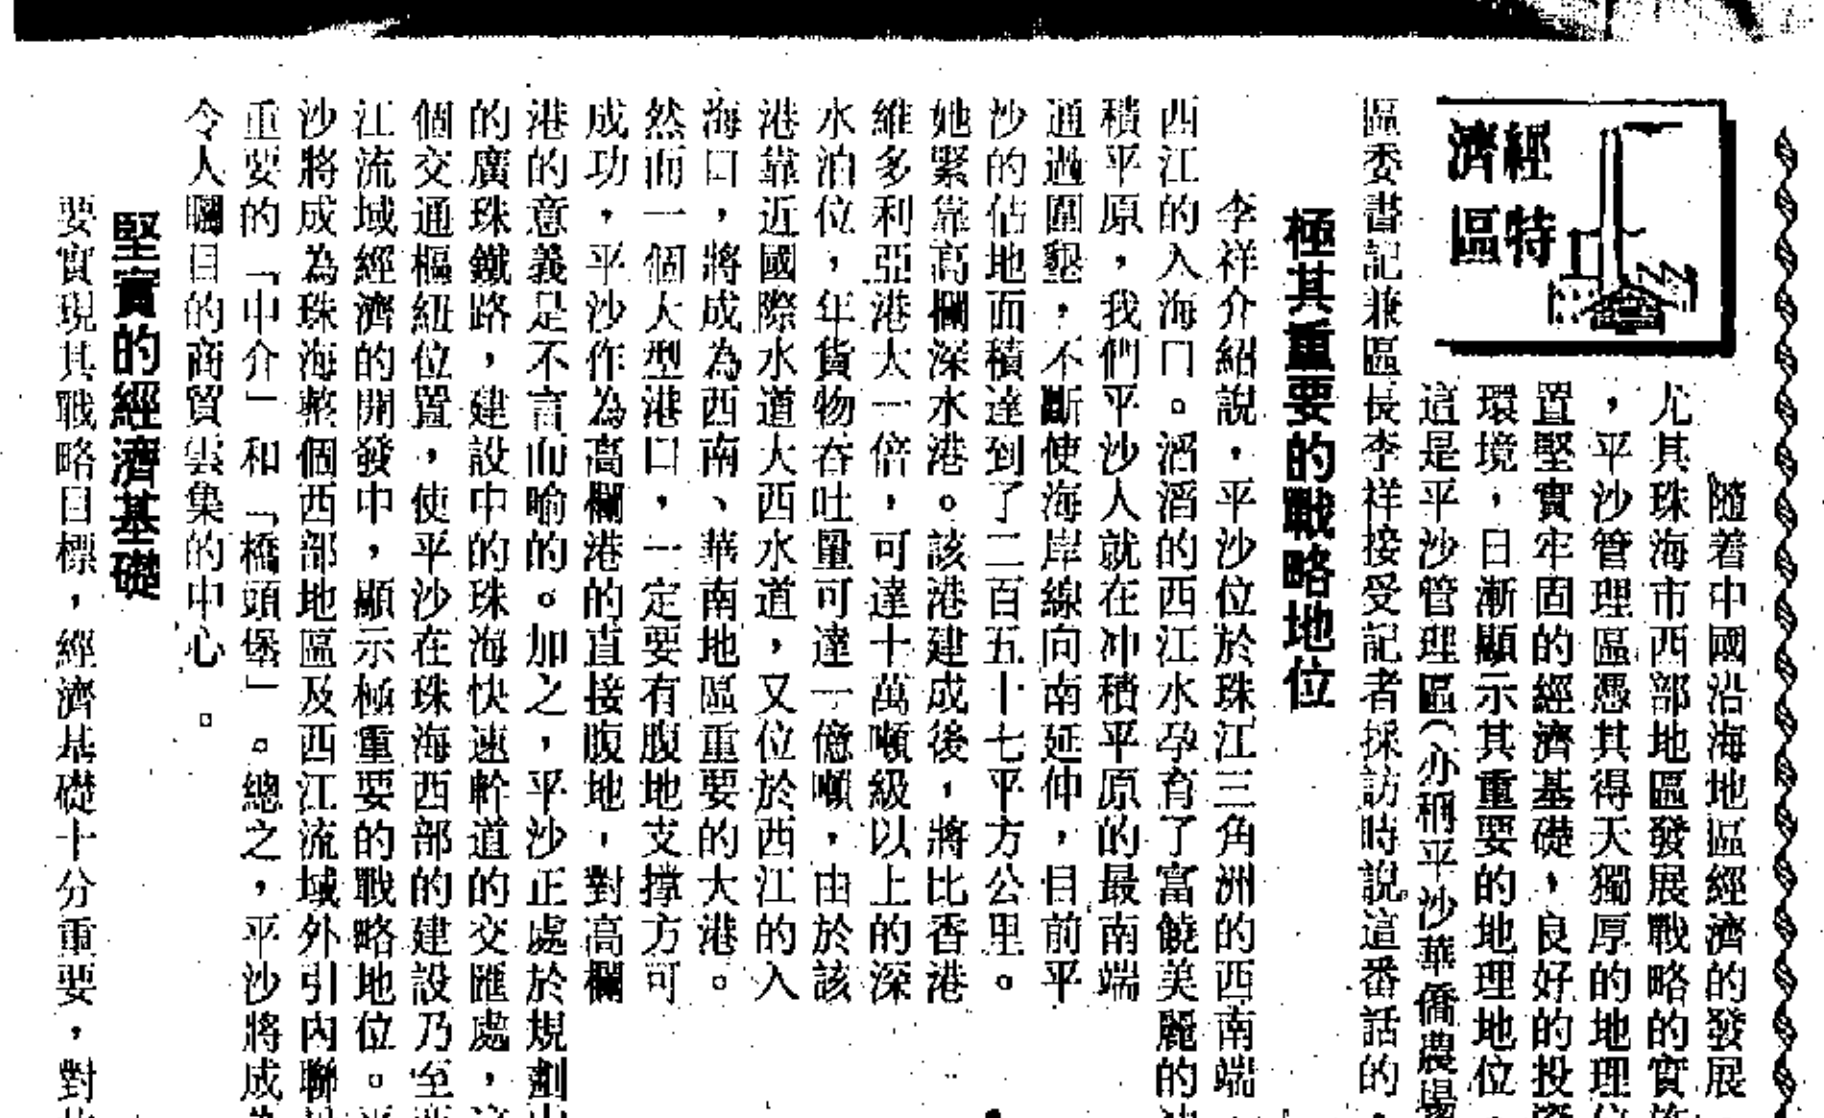 經濟
特區
隨着中國沿海地區經濟的發展
尤其珠海市西部地區發展戰略的實
，平沙管理區憑其得天獨厚的地理
置堅實牢固的經濟基礎，良好的投
環境，日漸顯示其重要的地理地位，
這是平沙管理區（亦稱平沙華僑農場
區委書記兼區長李祥接受記者採訪時說這番話的，
極其重要的戰略地位
李祥介紹說，平沙位於珠江三角洲的西南端，
西江的入海口。滔滔的西江水孕育了富饒美麗的
積平原，我們平沙人就在冲積平原的最南端
通過圍墾，不斷使海岸線向南延伸，目前平
沙的佔地面積達到了二百五十七平方公里。
她緊靠高欄深水港。該港建成後，將比香港
維多利亞港大一倍，可達十萬噸級以上的深
水泊位，年貨物吞吐量可達一億噸，由於該
港靠近國際水道大西水道，又位於西江的入
海口，將成為西南、華南地區重要的大港。
然而一個大型港口，一定要有腹地支撐方可
成功，平沙作為高欄港的直接腹地，對高欄
港的意義是不言而喻的。加之，平沙正處於規劃
的廣珠鐵路，建設中的珠海快速幹道的交匯處，
個交通樞紐位置，使平沙在珠海西部的建設乃至
江流域經濟的開發中，顯示極重要的戰略地位。
沙將成為珠海整個西部地區及西江流域外引內聯
重要的「中介」和「橋頭堡」。總之，平沙將成
令人矚目的商貿雲集的中心。
堅實的經濟基礎
要實現其戰略目標，經濟基礎十分重要，對